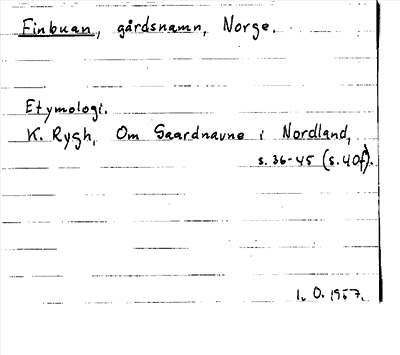 Finbuan, gårdsnamn, Norge.
Etymologi.
K. Rygh, Om Gaardnavne i Nordland,
s. 36-45 (s. 40f).
1. O. 1957.